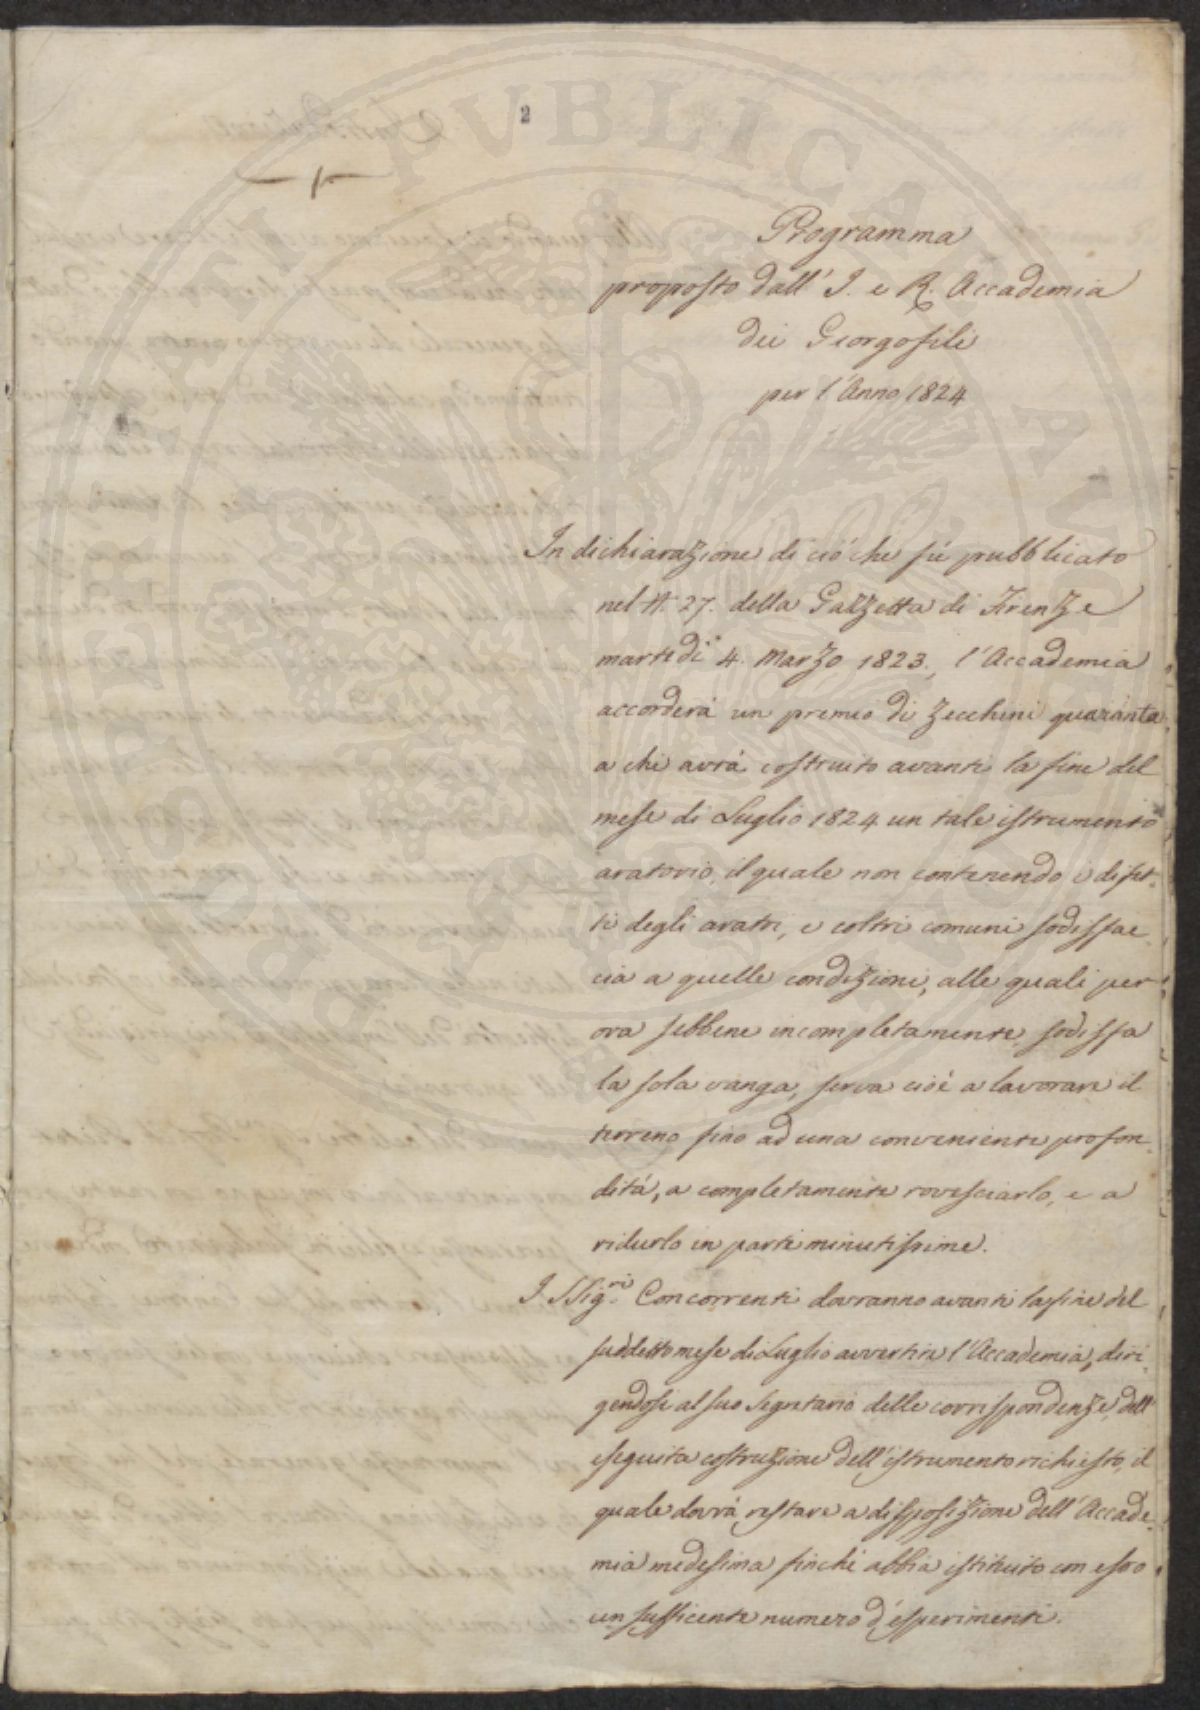 2
Programma
proposto dall' I. e R. Accademia
dei Georgofili
per l'Anno 1824
In dichiarazione di ciò che fù pubblicato
nel N. 27. della Gazzetta di Firenze
martedì 4. Marzo 1823., l'Accademia
accorderà un premio di Zecchini quaranta
a chi avrà costruito avanti la fine del
mese di Luglio 1824 un tale istrumento
aratorio, il quale non contenendo i difet-
ti degli aratri, e coltri comuni sodisfac-
cia a quelle condizioni, alle quali per
ora sebbene incompletamente sodisfa
la sola vanga, serva cioè a lavorare il
terreno fino ad una conveniente profon-
dità, a completamente rovesciarlo, e a
ridurlo in parti minutissime.
I SSig.ri Concorrenti dovranno avanti la fine del
suddetto mese di Luglio avvertire l'Accademia, diri-
gendosi al suo Segretario delle corrispondenze, dell'
eseguita costruzione dell'istrumento richiesto, il
quale dovrà restare a disposizione dell'Accade-
mia medesima finchè abbia istituito con esso
un sufficente numero d'esperimenti.